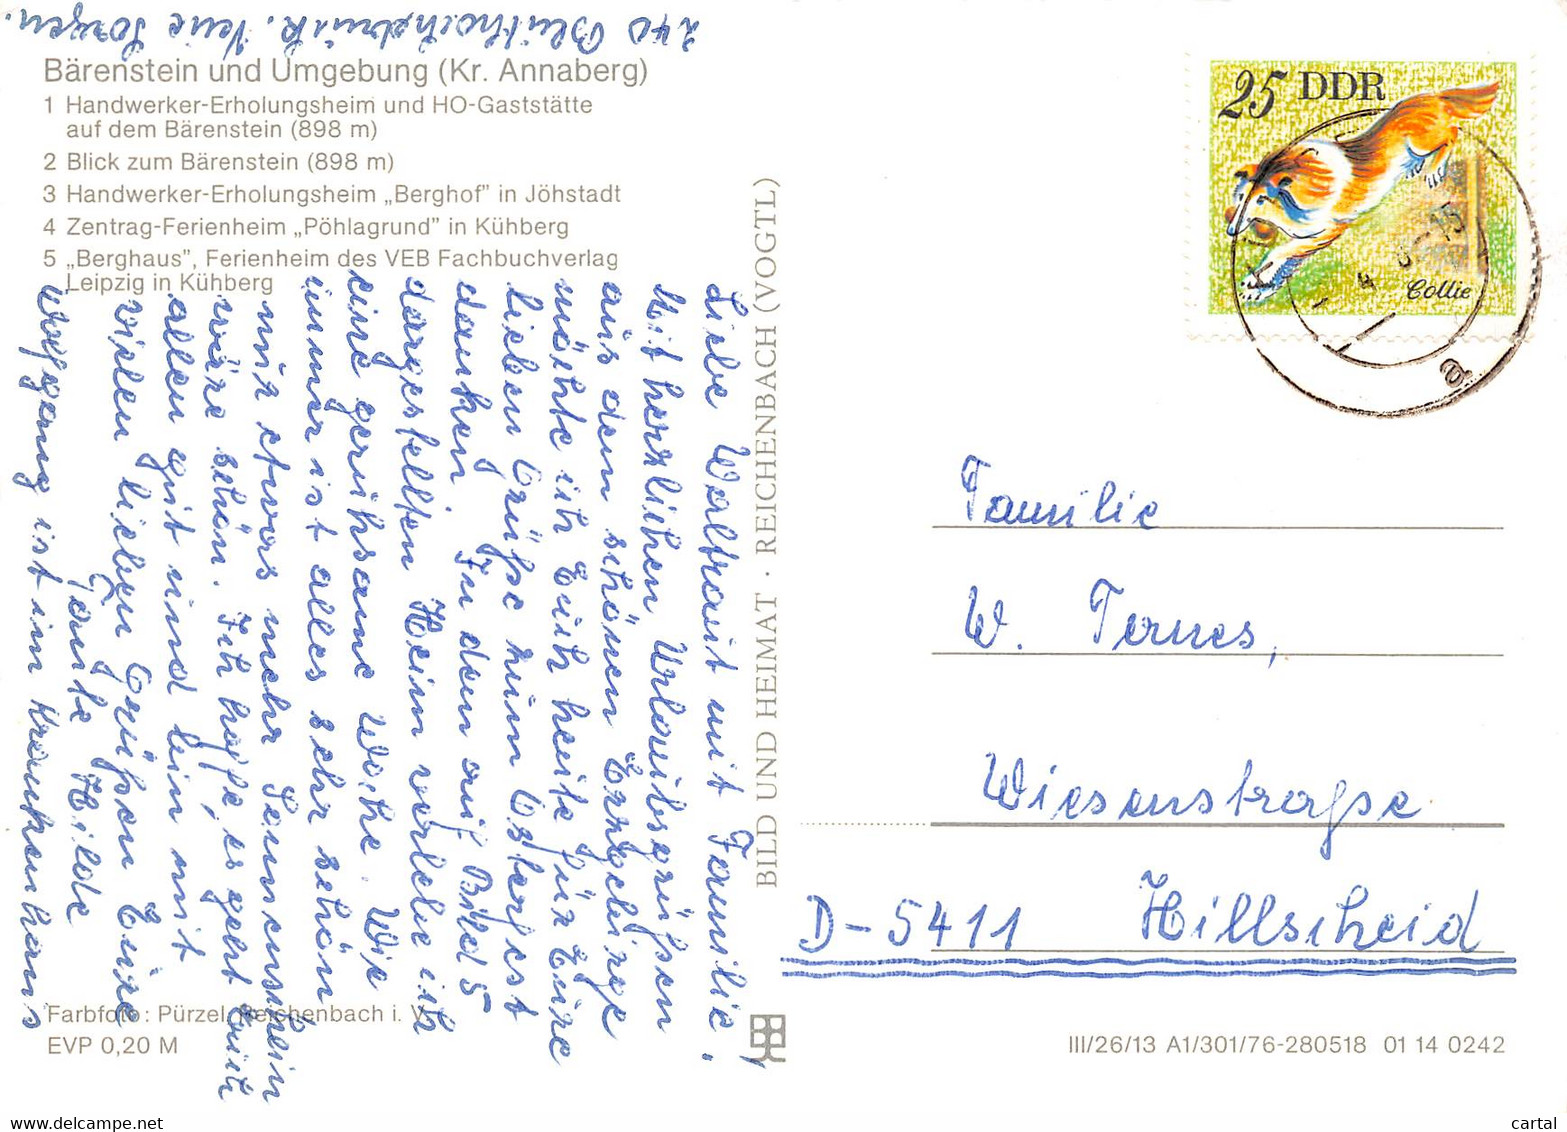 Bärenstein und Umgebung (Kr. Annaberg)
1 Handwerker-Erholungsheim und HO-Gaststätte
auf dem Bärenstein (898 m)
2 Blick zum Bärenstein (898 m)
3 Handwerker-Erholungsheim „Berghof" in Jöhstadt
4 Zentrag-Ferienheim „Pöhlagrund" in Kühberg
5 „Berghaus", Ferienheim des VEB Fachbuchverlag
Leipzig in Kühberg
Liebe Waltraut mit Familie,
Mit herzlichen Urlaubsgrüßen
aus dem schönen Erzgebirge
möchte ich Euch heute für Eure
lieben Grüße zum Osterfest
danken. In dem auf Bild 5
dargestellten Heim verlebe ich
eine geruhsame Woche. Wie
immer ist alles sehr schön
nur etwas mehr Sonnenschein
wäre schön. Ich hoffe, es geht Euch
allen gut und bin mit
vielen lieben Grüßen Eure
Tante Hilde
Wolfgang ist im Krankenhaus
240 Bluthochdruck. Neue Sorgen.
Farbfoto: Pürzel, Reichenbach i. V.
EVP 0,20 M
BILD UND HEIMAT · REICHENBACH (VOGTL)
25 DDR
Collie
15
a
Familie
W. Ternes,
Wiesenstraße
D-5411 Hillscheid
III/26/13 A1/301/76-280518 01 14 0242
cartal
www.delcampe.net